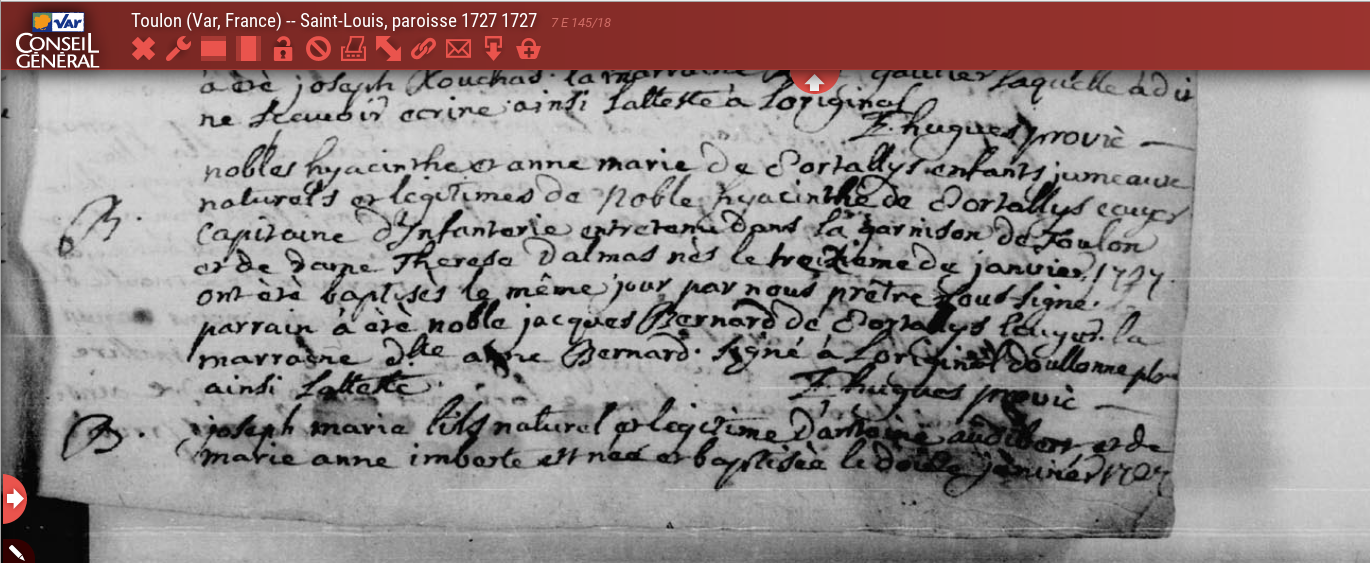 Toulon (Var, France) -- Saint-Louis, paroisse 1727 1727 7 E 145/18
VAR
CONSEIL
GÉNÉRAL
à été joseph la marraine gautier laquelle à dit
ne sçavoir ecrire ainsi l'atteste à l'original
F. hugues provic
nobles hyacinthe et anne marie de Portallys enfants jumeaux
naturels et legitimes de Noble hyacinthe de Portallys ecuyer
B.
capitaine d'Infanterie entretenu dans la garnison de Toulon
et de dame Therese Dalmas nés le treizieme de janvier 1727
ont été baptises le même jour par nous prêtre sous signé.
parrain à été noble jacques Bernard de Portallys ecuyer. la
marraine dlle anne Bernard. signé à L'original
ainsi l'atteste
F. hugues provic
B.
joseph marie fils naturel et legitime d'antoine audibert et de
marie anne imberte est née et baptisée le janvier 1727